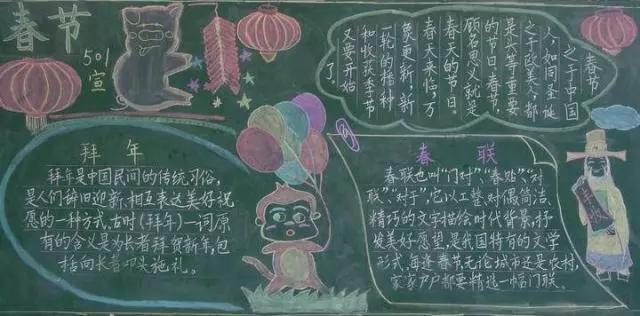 春节
501
宣
春节
之于中国
人,如同圣诞
之于欧美人,都
是头等重要
的节日。春节,
顾名思义就是
春天的节日。
春天来临,万
象更新,新
一轮的播种
和收获季节
又要开始
了
拜年
拜年是中国民间的传统习俗,
是人们辞旧迎新、相互表达美好祝
愿的一种方式。古时(拜年)一词原
有的含义是为长者拜贺新年,包
括向长者叩头施礼。
春联
春联也叫“门对”、“春贴”、“对
联”、“对子”,它以工整、对偶、简洁、
精巧的文字描绘时代背景,抒
发美好愿望,是我国特有的文学
形式,每逢春节无论城市还是农村,
家家户户都要精选一幅门联。